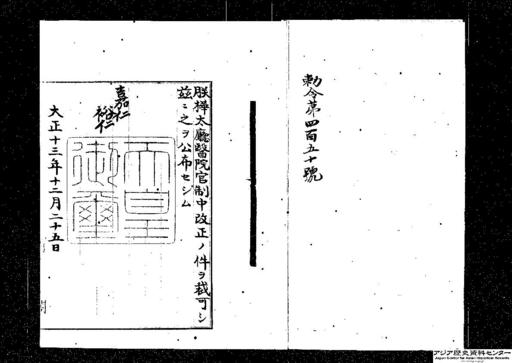 勅令第四百五十號
朕樺太廳醫院官制中改正ノ件ヲ裁可シ
茲ニ之ヲ公布セシム
嘉仁
裕仁
天皇御璽
大正十三年十二月二十五日
アジア歴史資料センター
Japan Center for Asian Historical Records